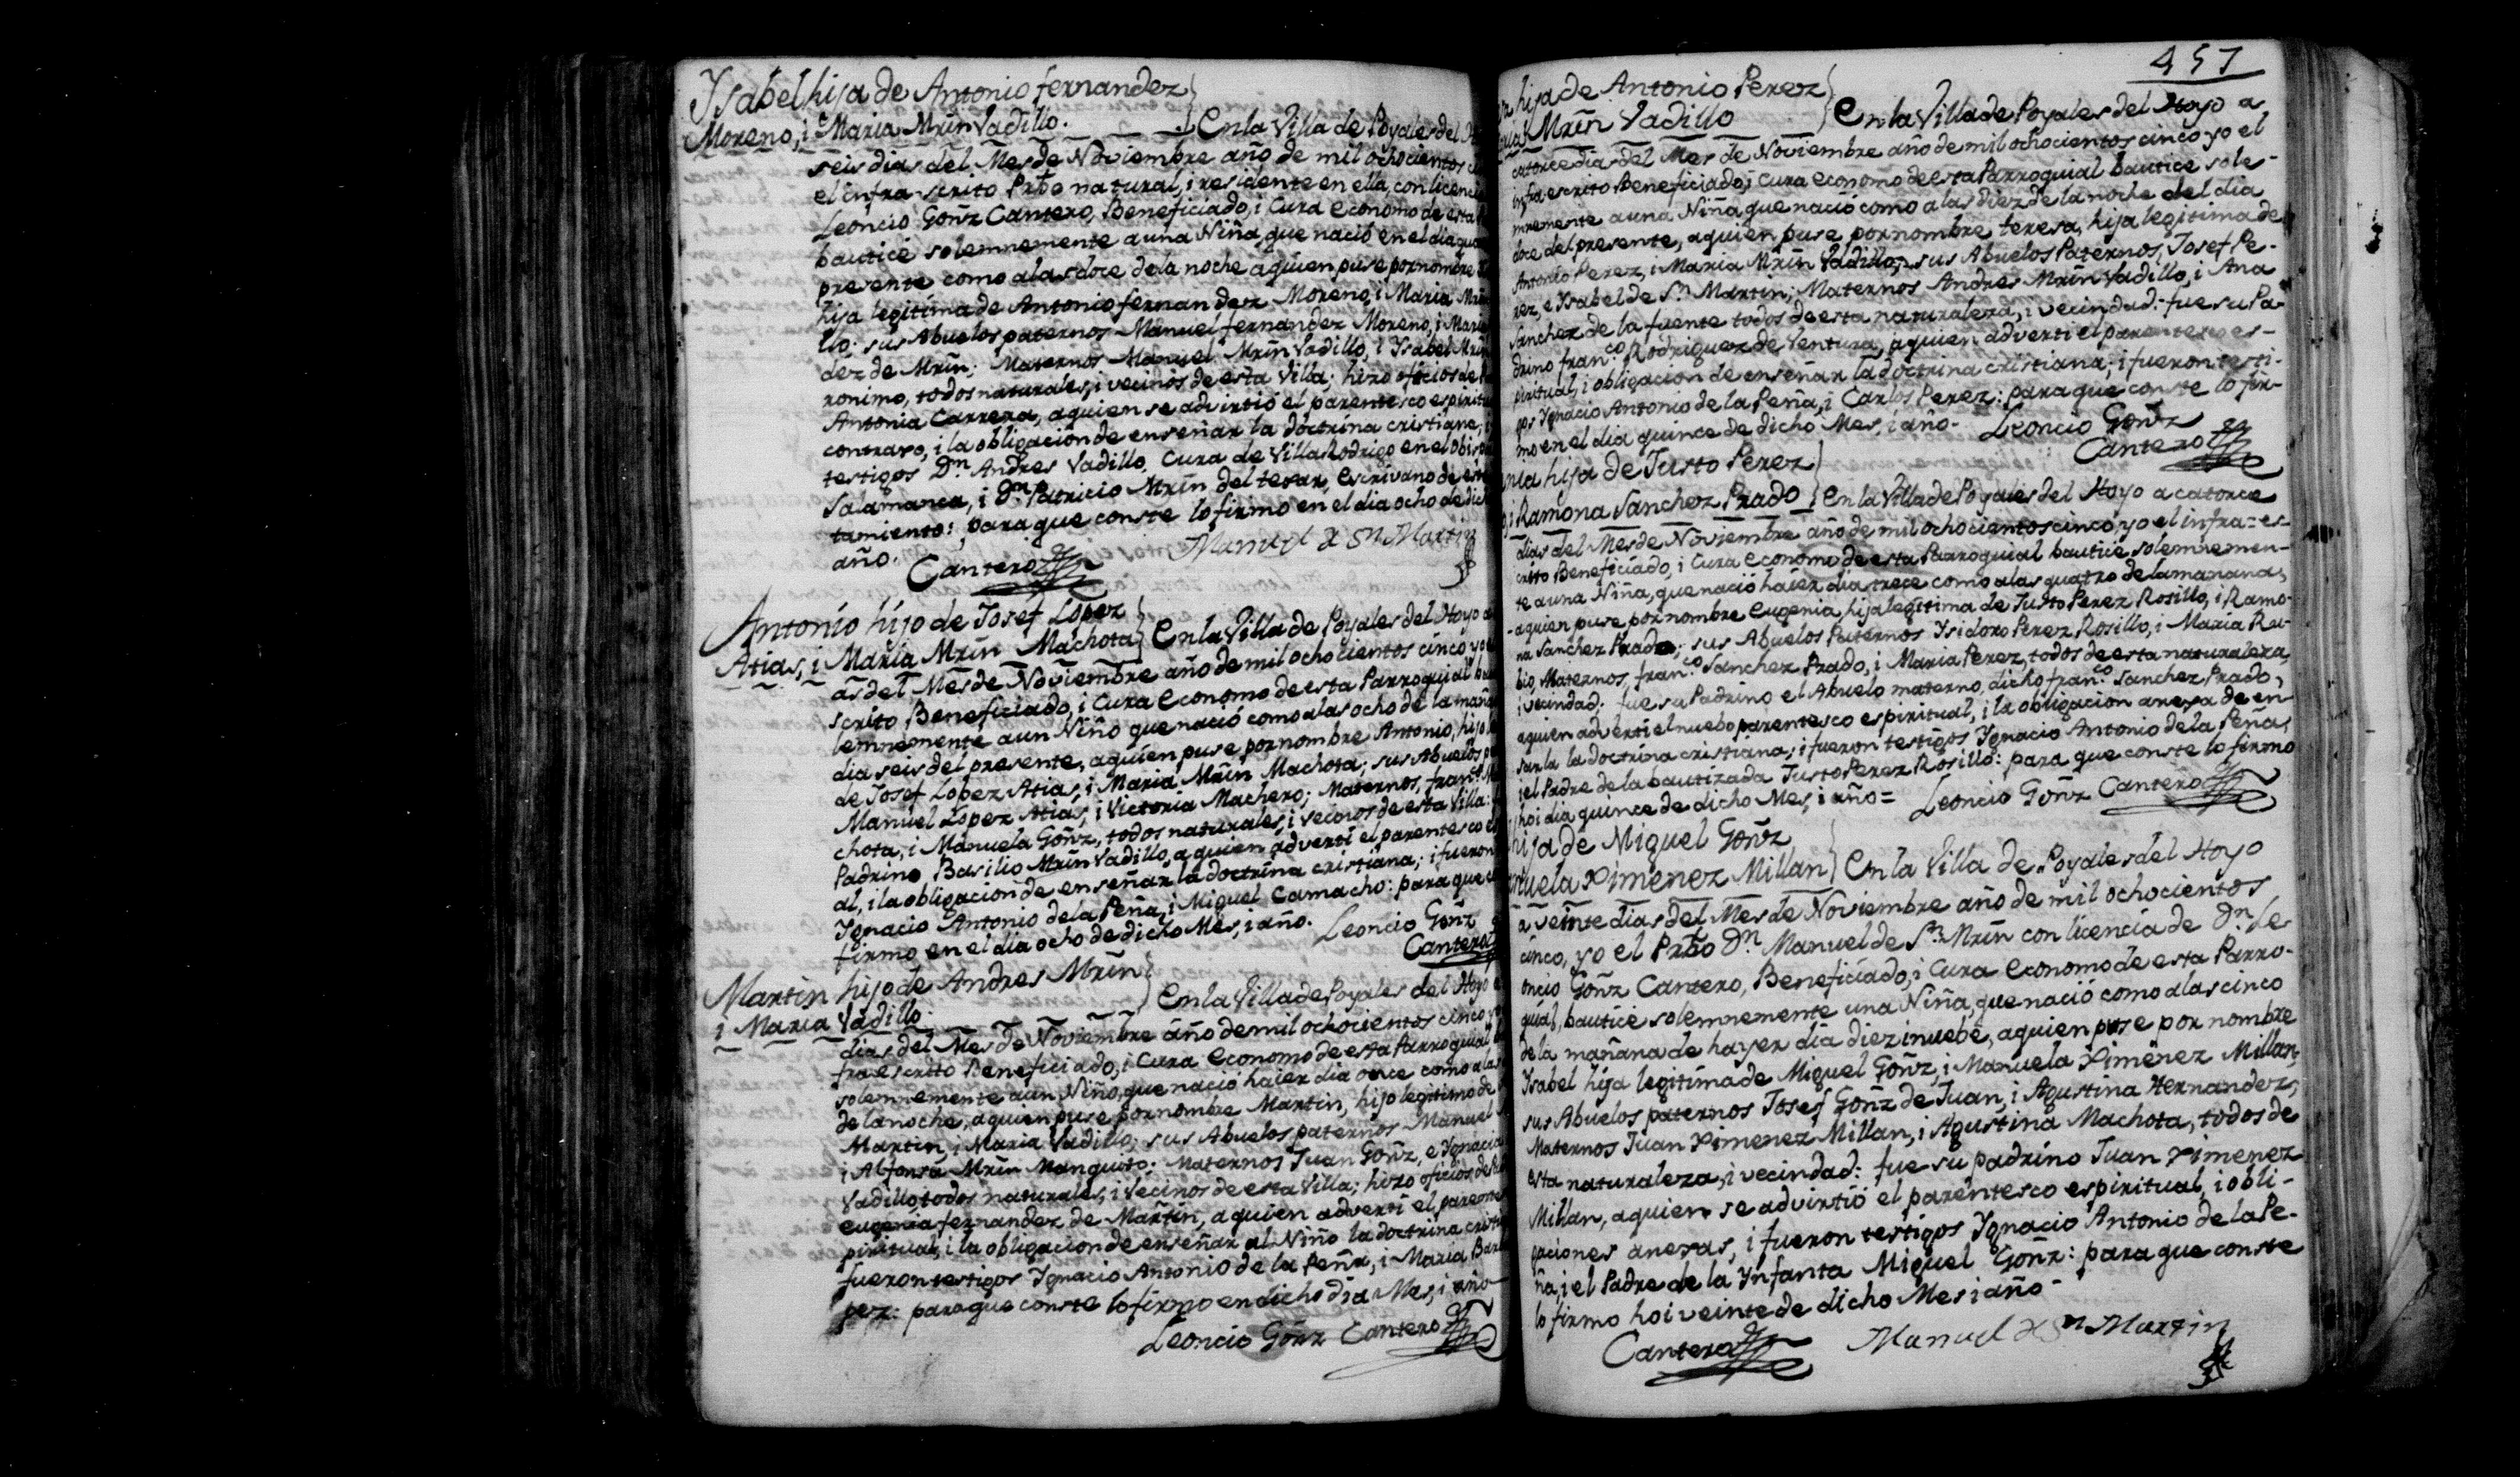 Ysabel hija de Antonio fernandez
Moreno, i Maria Mrn̄ Vadillo. En la Villa de Poyales del
seis dias del Mes de Noviembre año de mil ochocientos
el infra-scrito Prb̄o natural, i residente en ella, con licencia
Leoncio Gonz̄ Cantero, Beneficiado, i Cura economo de esta
bauticé solemnemente a una Niña, que nació en el dia
presente como a las doce de la noche a quien puse por nombre
hija legitima de Antonio fernandez Moreno, i Maria
llo: sus Abuelos paternos Manuel fernandez Moreno, i Maria
dez de Mrn̄; Maternos Manuel Mrn̄ Vadillo, i Ysabel Mrn̄
ronimo, todos naturales, i vecinos de esta Villa; hizo oficios de
Antonia Carrera, a quien se advirtió el parentesco
contrayo, i la obligacion de enseñar la doctrina cristiana,
testigos Dn. Andres Vadillo, Cura de Villa Rodrigo en el
Salamanca, i Dn. Patricio Mrn̄ del tesar, Escrivano de
tamiento: para que conste lo firmo en el dia ocho de
año. Cantero Manuel de Sn Martin
Antonio hijo de Josef Lopez
Atias, i Maria Mrn̄ Machota En la Villa de Poyales del Hoyo
as del Mes de Noviembre año de mil ochocientos cinco
scrito Beneficiado, i Cura Economo de esta Parroquial
lemnemente a un Niño que nació como a las ocho de la
dia seis del presente, a quien puse por nombre Antonio, hijo
de Josef Lopez Atias, i Maria Mrn̄ Machota; sus Abuelos
Manuel Lopez Atias, i Victoria Machero; Maternos, franco
chota, i Manuela Gonz̄, todos naturales, i vecinos de esta Villa:
Padrino Basilio Mrn̄ Vadillo, a quien adverti el parentesco
al, i la obligacion de enseñar la doctrina cristiana; i fueron
Ygnacio Antonio de la Peña, i Miguel Camacho: para que
firmo en el dia ocho de dicho Mes, i año. Leoncio Gonz̄
Cantero
Martin hijo de Andres Mrn̄
i Maria Vadillo. En la Villa de Poyales del Hoyo
dias del Mes de Noviembre año de mil ochocientos cinco
fraescrito Beneficiado, i Cura Economo de esta Parroquial
solemnemente a un Niño, que nació haier dia once como a las
de la noche, a quien puse por nombre Martin, hijo legitimo de
Martin, i Maria Vadillo; sus Abuelos paternos Manuel
i Alfonsa Mrn̄ Manguito; Maternos Juan Gonz̄, e Ygnacia
Vadillo, todos naturales, i vecinos de esta Villa; hizo oficios de
eugenia fernandez de Martin, a quien adverti el
piritual, i la obligacion de enseñar al Niño la doctrina
fueron testigos Ygnacio Antonio de la Peña, i Maria
pez: para que conste lo firmo en dicho dia Mes, i año
Leoncio Gonz̄ Cantero
457
hija de Antonio Perez
Mrn̄ Vadillo En la Villa de Poyales del Hoyo a
catorce dias del Mes de Noviembre año de mil ochocientos cinco yo el
infraescrito Beneficiado, i Cura economo de esta Parroquial bauticé sole-
mnemente a una Niña que nació como a las diez de la noche del dia
doce del presente, a quien puse por nombre teresa, hija legitima de
Antonio Perez, i Maria Mrn̄ Vadillo; sus Abuelos Paternos, Josef Pe-
rez, e Ysabel de Sn. Martin; Maternos Andres Mrn̄ Vadillo, i Ana
Sanchez de la fuente todos de esta naturaleza, i vecindad: fue su Pa-
drino franco. Rodriguez de Ventura, a quien adverti el parentesco es-
piritual, i obligacion de enseñar la doctrina cristiana; i fueron testi-
gos Ygnacio Antonio de la Peña, i Carlos Perez: para que conste lo fir-
mo en el dia quince de dicho Mes, i año - Leoncio Gonz̄
Cantero
hija de Justo Perez
i Ramona Sanchez Prado En la Villa de Poyales del Hoyo a catorce
dias del Mes de Noviembre año de mil ochocientos cinco, yo el infra=es-
crito Beneficiado, i Cura economo de esta Parroquial bauticé solemnemen-
te a una Niña, que nació haier dia trece como a las quatro de la manana,
a quien puse por nombre Eugenia, hija legitima de Justo Perez Rosillo, i Ramo-
na Sanchez Prado; sus Abuelos Paternos Ysidoro Perez Rosillo, i Maria Ru-
bio, Maternos, franco. Sanchez Prado, i Maria Perez, todos de esta naturaleza,
i vecindad: fue su Padrino el Abuelo materno, dicho franco. Sanchez Prado,
a quien adverti el nuebo parentesco espiritual, i la obligacion anexa de en-
sarla la doctrina cristiana; i fueron testigos Ygnacio Antonio de la Peña,
i el Padre de la bautizada Justo Perez Rosillo: para que conste lo firmo
hoi dia quince de dicho Mes, i año = Leoncio Gonz̄ Cantero
hija de Miguel Gonz̄
Ximenez Millan En la Villa de Poyales del Hoyo
a veinte dias del Mes de Noviembre año de mil ochocientos
cinco, yo el Prb̄o Dn. Manuel de Sn. Mrn̄ con licencia de Dn. Le
oncio Gonz̄ Cantero, Beneficiado, i Cura Economo de esta Parro-
quial, bauticé solemnemente una Niña, que nació como a las cinco
de la mañana de hayer dia diez i nuebe, a quien puse por nombre
Ysabel hija legitima de Miguel Gonz̄, i Manuela Ximenez Millan,
sus Abuelos paternos Josef Gonz̄ de Juan, i Agustina Hernandez;
Maternos Juan Ximenez Millan, i Agustina Machota, todos de
esta naturaleza, i vecindad: fue su padrino Juan Ximenez
Millan, a quien se advirtió el parentesco espiritual, i obli-
gaciones anexas, i fueron testigos Ygnacio Antonio de la Pe-
ña, i el Padre de la Ynfanta Miguel Gonz̄: para que conste
lo firmo hoi veinte de dicho Mes i año -
Cantero Manuel de Sn Martin